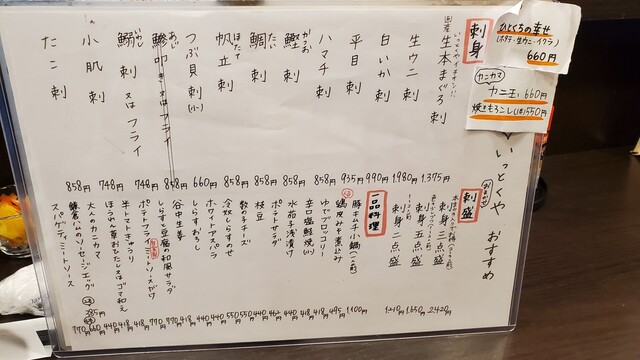 ひとくちの幸せ
(ホタテ・生ウニ・イクラ)
660円
カニカマ
カニ玉 660円
焼きもろこし(1本) 550円
いっとくや おすすめ
刺身
いっとくやイチオシ!!
国産 生本まぐろ 刺 1.375円
生ウニ 刺 1.980円
白いか 刺 990円
平目 刺 935円
ハマチ 刺 858円
かつお
鰹 刺 858円
たい
鯛 刺 858円
ほたて
帆立 刺 858円
つぶ貝 刺(小) 660円
あじ
鯵 858円
鰯 刺 又は フライ 748円
小肌 刺 748円
たこ 刺 858円
おまかせ
刺盛
刺身三点盛 2.420円
刺身五点盛 1.650円
刺身二点盛 1.210円
一品料理
豚キムチ小鍋(一人前) 1.100円
鶏皮みそ煮込み 495円
ゆでブロッコリー 418円
辛口塩鮭焼(小) 418円
水茄子浅漬け
ポテトサラダ 440円
枝豆
数の子チーズ 550円
冷奴しらすのせ 550円
ホワイトアスパラ
しらすおろし 440円
谷中生姜
しらすと豆腐の和風サラダ 770円
ポテトフライミートソースがけ
418円
ほうれん草おひたし又はゴマ和え 440円
大人のカニカマ 660円
鎌倉ハムのソーセージエッグ
スパゲティミートソース 770円